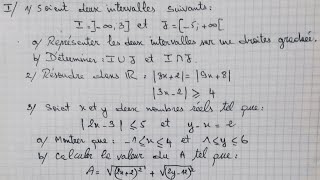 I/ 1/ Soient deux intervalles suivants:
I = ]-∞, 3] et J = [-5, +∞[
a/ Représenter les deux intervalles sur une droites graduée.
b/ Déterminer: I∪J et I∩J.
2/ Résoudre dans ℝ: |3x+2| = |9x+8|
|3x-2| ≥ 4
3/ Soient x et y deux nombres réels tel que:
|2x-3| ≤ 5 et y-x = 2
a/ Montrer que: -1≤x≤4 et 1≤y≤6
b/ Calculer la valeur du A tel que:
A = √(2x+2)² + √(2y-12)²